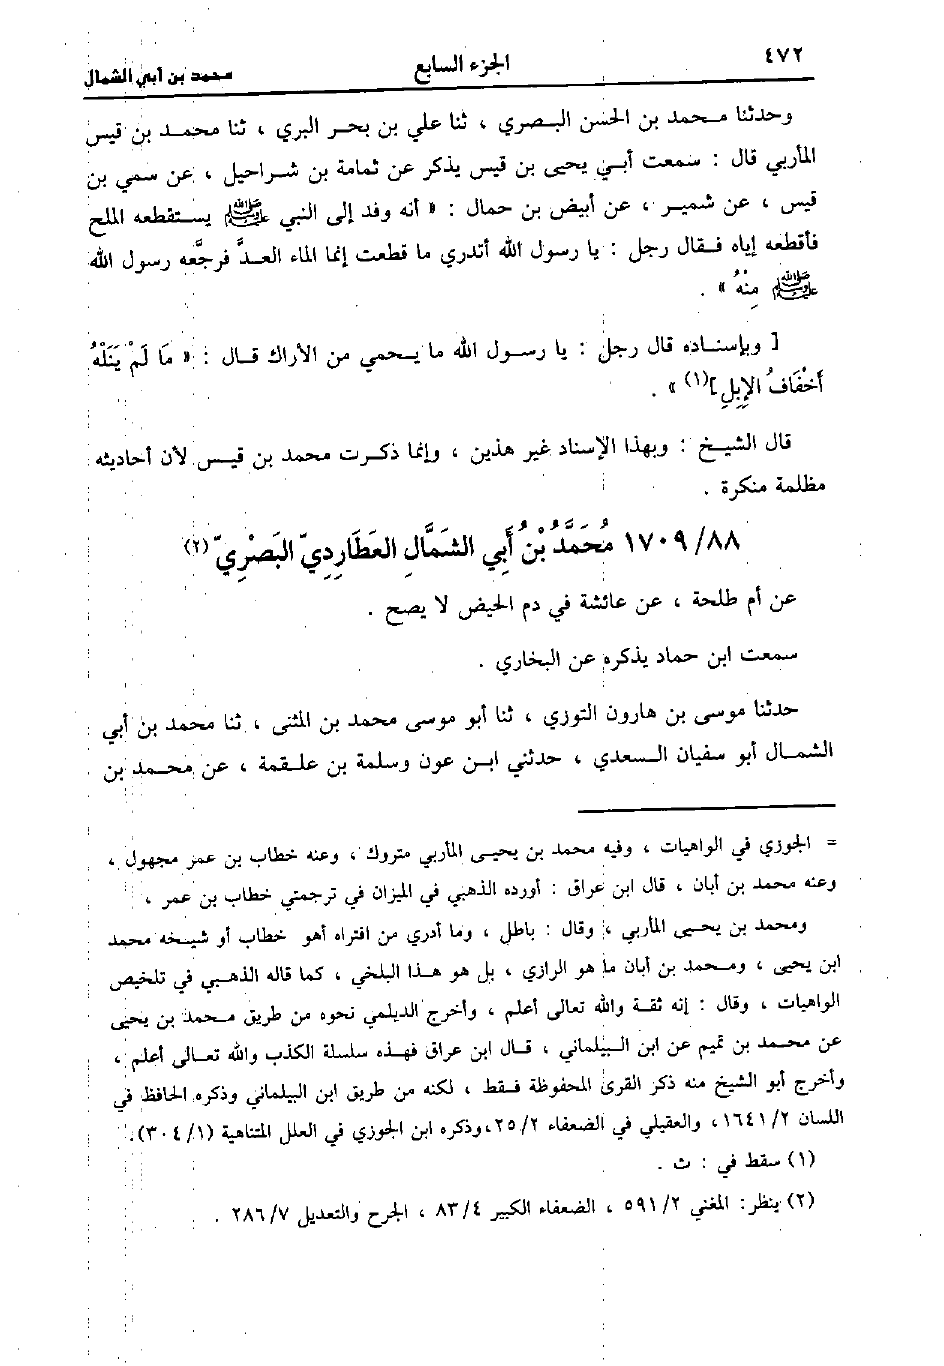 ٤٧٢ الجزء السابع محمد بن أبي الشمال
وحدثنا محمد بن الحسن البصري ، ثنا علي بن بحر البري ، ثنا محمد بن قيس
المأربي قال : سمعت أبي يحيى بن قيس يذكر عن ثمامة بن شراحيل ، عن سمي بن
قيس ، عن شمير ، عن أبيض بن حمال : « أنه وفد إلى النبي ﷺ يستقطعه الملح
فأقطعه إياه فقال رجل : يا رسول الله أتدري ما قطعت إنما الماء العدَّ فرجَّعه رسول الله
ﷺ مِنْهُ » .
[ وبإسناده قال رجل : يا رسول الله ما يحمي من الأراك قال : « مَا لَمْ يَنَلْهُ
أَخْفَافُ الإِبِلِ ](١) » .
قال الشيخ : وبهذا الإسناد غير هذين ، وإنما ذكرت محمد بن قيس لأن أحاديثه
مظلمة منكرة .
١٧٠٩/٨٨ مُحَمَّدُ بْنُ أَبِي الشَّمَّالِ العَطَارِدِيّ البَصْرِيّ (٢)
عن أم طلحة ، عن عائشة في دم الحيض لا يصح .
سمعت ابن حماد يذكره عن البخاري .
حدثنا موسى بن هارون التوزي ، ثنا أبو موسى محمد بن المثنى ، ثنا محمد بن أبي
الشمال أبو سفيان السعدي ، حدثني ابن عون وسلمة بن علقمة ، عن محمد بن
= الجوزي في الواهيات ، وفيه محمد بن يحيى المأربي متروك ، وعنه خطاب بن عمر مجهول ،
وعنه محمد بن أبان ، قال ابن عراق : أورده الذهبي في الميزان في ترجمتي خطاب بن عمر ،
ومحمد بن يحيى المأربي ، وقال : باطل ، وما أدري من افتراه أهو خطاب أو شيخه محمد
ابن يحيى ، ومحمد بن أبان ما هو الرازي ، بل هو هذا البلخي ، كما قاله الذهبي في تلخيص
الواهيات ، وقال : إنه ثقة والله تعالى أعلم ، وأخرج الديلمي نحوه من طريق محمد بن يحيى
عن محمد بن تميم عن ابن البيلماني ، قال ابن عراق فهذه سلسلة الكذب والله تعالى أعلم ،
وأخرج أبو الشيخ منه ذكر القرى المحفوظة فقط ، لكنه من طريق ابن البيلماني وذكره الحافظ في
اللسان ١٦٤١/٢ ، والعقيلي في الضعفاء ٢٥/٢ ، وذكره ابن الجوزي في العلل المتناهية (٣٠٤/١).
(١) سقط في : ث .
(٢) ينظر: المغني ٥٩١/٢ ، الضعفاء الكبير ٨٣/٤ ، الجرح والتعديل ٢٨٦/٧ .